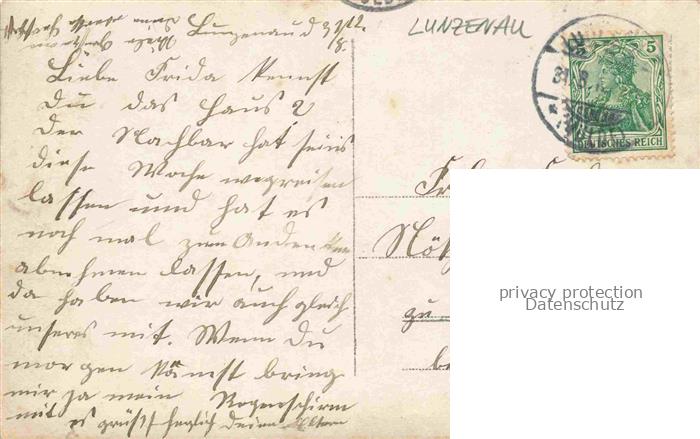 Lunzenau d 31/8.
LUNZENAU
Liebe Frida kennst
Du das Haus?
Der Nachbar hat seins
diese Woche wegreißen
lassen und hat es
noch mal zum Andenken
abnehmen lassen, und
da haben wir auch gleich
unseres mit. Wenn Du
morgen kämst bring
mir ja mein Regenschirm
mit es grüßt herzlich deine Eltern
5
DEUTSCHES REICH
zu
privacy protection
Datenschutz